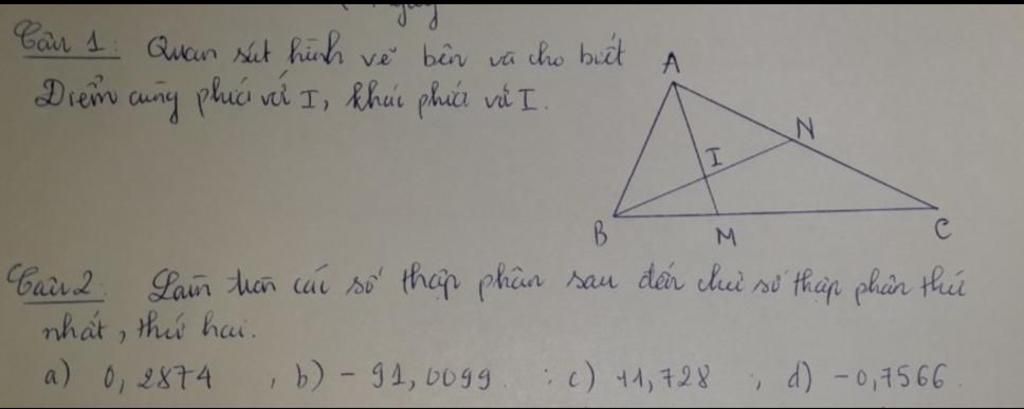 Câu 1: Quan sát hình vẽ bên và cho biết
Điểm cùng phía với I, khác phía với I.
A
N
I
B
M
C
Câu 2: Làm tròn các số thập phân sau đến chữ số thập phân thứ
nhất, thứ hai.
a) 0,2874 , b) - 91,0099 ; c) 11,728 ; d) -0,7566.